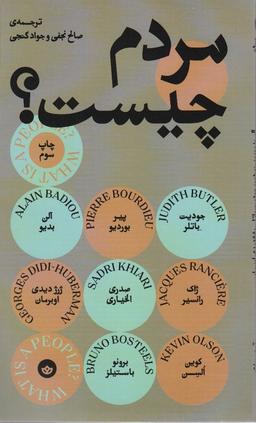 ترجمه‌ی
صالح نجفی و جواد گنجی
مردم
چیست؟
WHAT IS A PEOPLE?
چاپ
سوم
ALAIN BADIOU
آلن
بدیو
PIERRE BOURDIEU
پیر
بوردیو
JUDITH BUTLER
جودیت
باتلر
GEORGES DIDI-HUBERMAN
ژرژ دیدی
اوبرمان
SADRI KHIARI
صدری
الخیاری
JACQUES RANCIÈRE
ژاک
رانسیر
WHAT IS A PEOPLE?
BRUNO BOSTEELS
برونو
باستیلز
KEVIN OLSON
کوین
السن